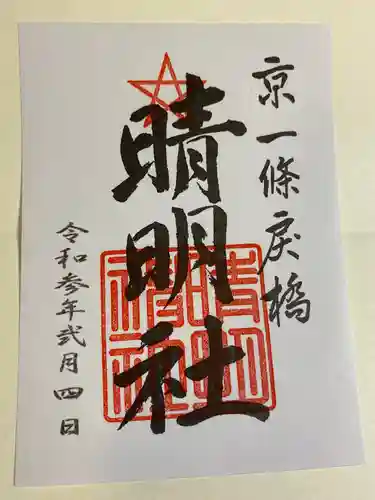 京一條戻橋
晴明社
令和参年弐月四日